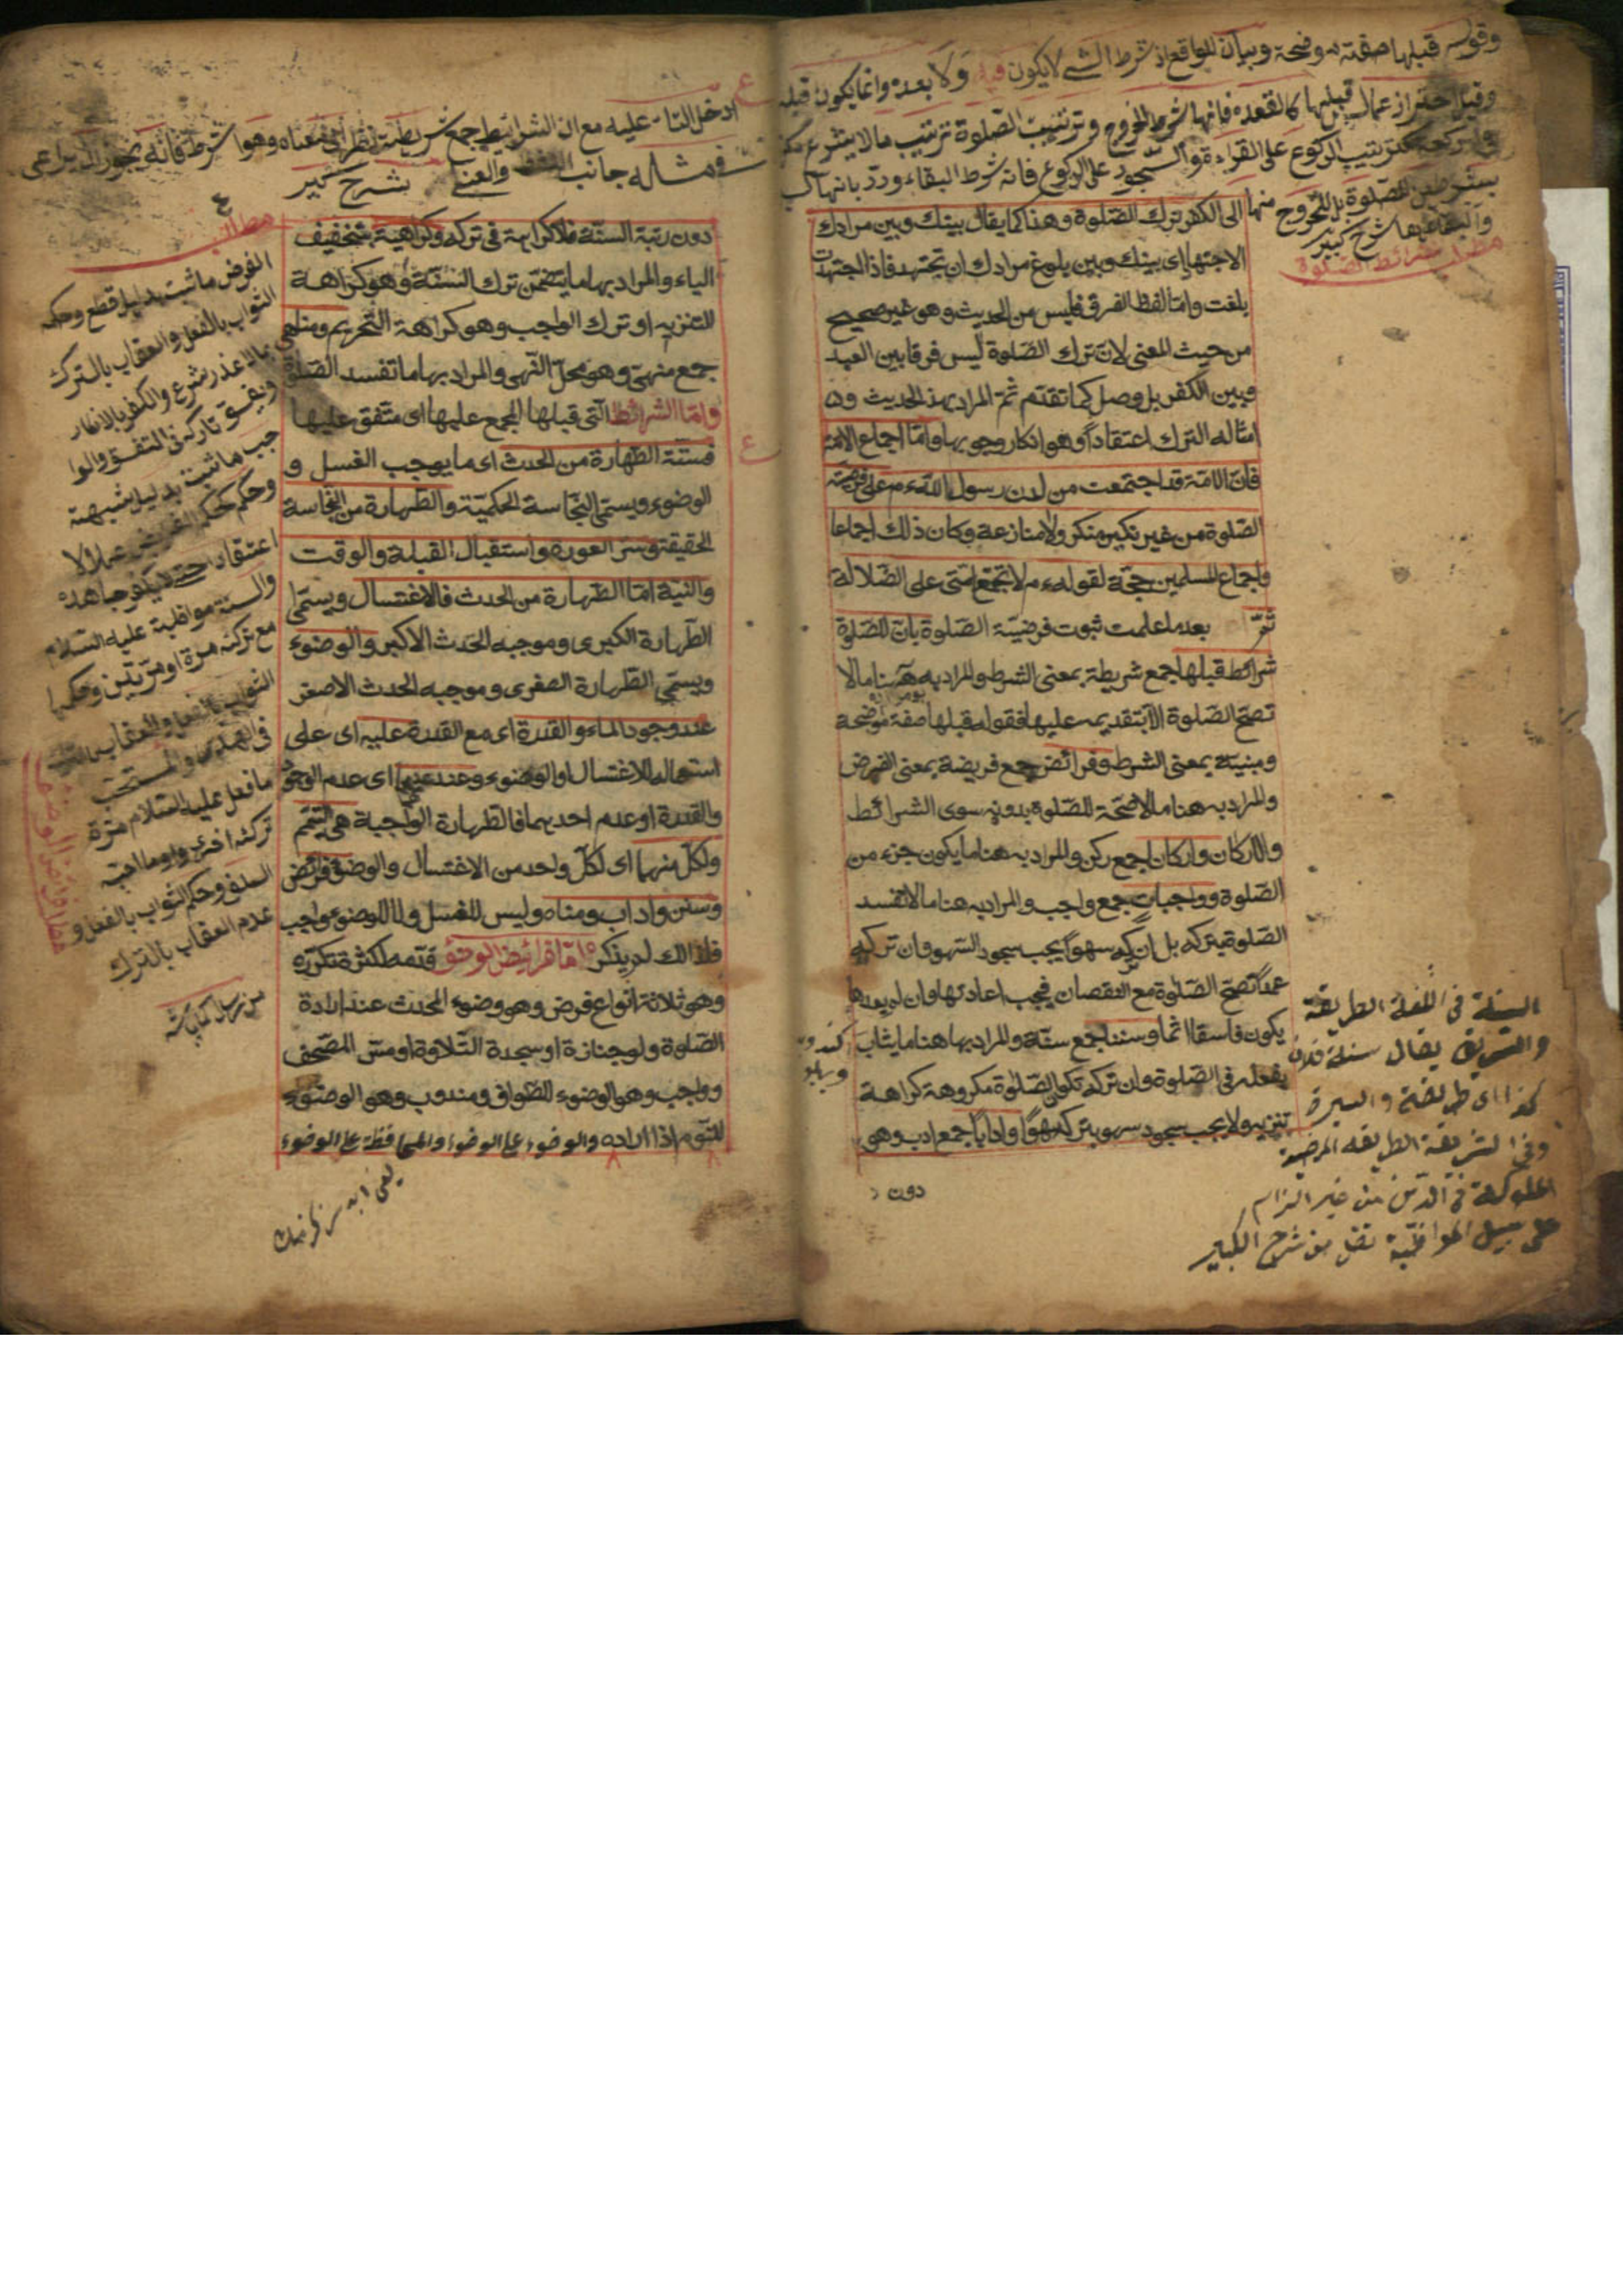 وقوله قبلها صفة موضحة وبيان للواقع اذ شرط الشئ لا يكون فيه ولا بعده وانما يكون قبله
وقيل احتراز عما ليس قبلها كالقعدة فانها شرط الخروج وترتيب الصلوة ترتيب ما لا يشرع مكررا
كترتيب الركوع على القراءة والسجود على الركوع فانه شرط البقاء ورد بانها ليست
بشرط من الصلوة بل للخروج منها
والبقاء عليها شرح كبير
مطلب شرائط الصلوة
الى الكفر ترك الصلوة وهذا كما يقال بينك وبين مرادك
الاجتهاد اى بينك وبين بلوغ مرادك ان تجتهد فاذا اجتهدت
بلغت واما لفظ الفرق فليس من الحديث وهو غير صحيح
من حيث المعنى لان ترك الصلوة ليس فرقا بين العبد
وبين الكفر بل وصل كما تقدم ثم المراد بهذا الحديث و
امثاله الترك اعتقادا وهو انكار وجوبها واما اجماع الامة
فان الامة قد اجتمعت من لدن رسول الله عم على فرضية
الصلوة من غير نكير منكر ولا منازعة وكان ذلك اجماعا
واجماع المسلمين حجة لقوله عم لا تجتمع امتى على الضلالة
ثم بعد ما علمت ثبوت فرضية الصلوة بان للصلوة
شرائط قبلها جمع شريطة بمعنى الشرط والمراد به ههنا ما لا
تصح الصلوة الا بتقديمه عليها فقوله قبلها صفة موضحة
ومبنية بمعنى الشرط وفرائض جمع فريضة بمعنى الفرض
والمراد به هنا ما لا صحة للصلوة بدونه سوى الشرائط
والاركان واركان جمع ركن والمراد به هنا ما يكون جزء من
الصلوة وواجبات جمع واجب والمراد به هنا ما لا تفسد
الصلوة بتركه بل ان تركه سهوا يجب سجود السهو وان تركه
عمدا تصح الصلوة مع النقصان فيجب اعادتها وان لم يعدها
يكون فاسقا اثما وسننا جمع سنة والمراد بها هنا ما يثاب
بفعله فى الصلوة وان تركه تكون الصلوة مكروهة كراهة
تنزيه ولا يجب سجود سهو بتركه سهوا وادابا جمع ادب وهى
دون
السنة فى اللغة الطريقة
والسيرة يقال سنة فلان
كذا اى طريقته والسيرة
وفى الشريعة الطريقة المرضية
المسلوكة فى الدين من غير الزام
على سبيل المواظبة نقل من شرح الكبير
ادخل التاء عليه مع ان الشرائط جمع شريطة نظرا الى معناه وهو شرط فانه يجوز ان يراعى
فى مثاله جانب اللفظ والمعنى بشرح كبير
دون رتبة السنة فلا كراهة فى تركه وكراهية بتخفيف
الياء والمراد بها ما يتضمن ترك السنة وهو كراهة
التنزيه او ترك الواجب وهو كراهة التحريم ومناهى
جمع منهى وهو محل النهى والمراد بها ما تفسد الصلوة
واما الشرائط التى قبلها المجمع عليها اى متفق عليها
فستة الطهارة من الحدث اى ما يوجب الغسل و
الوضوء ويسمى النجاسة الحكمية والطهارة من النجاسة
الحقيقة وستر العورة واستقبال القبلة والوقت
والنية اما الطهارة من الحدث فالاغتسال ويسمى
الطهارة الكبرى وموجبه الحدث الاكبر والوضوء
ويسمى الطهارة الصغرى وموجبه الحدث الاصغر
عند وجود الماء والقدرة اى مع القدرة عليه اى على
استعماله للاغتسال او الوضوء وعند عدمهما اى عدم الوجود
والقدرة او عدم احديهما فالطهارة الواجبة هى التيمم
ولكل منهما اى لكل واحد من الاغتسال والوضوء فرائض
وسنن واداب ومناه وليس للغسل ولا للوضوء واجب
فلذالك لم يذكر اما فرائض الوضوء قدمه لكثرة تكرره
وهو ثلاثة انواع فرض وهو وضوء المحدث عند ارادة
الصلوة ولو جنازة او سجدة التلاوة او مس المصحف
وواجب وهو الوضوء للطواف ومندوب وهو الوضوء
للنوم اذا اراده والوضوء على الوضوء والمحافظة على الوضوء
مطالب
الفرض ما ثبت بدليل قطع وحكمه
الثواب بالفعل والعقاب بالترك
بلا عذر شرع والكفر بالانكار
جب ما ثبت بدليل شبهة
وحكمه كحكم الفرض عملا لا
اعتقادا حتى لا يكفر جاهده
والسنة مواظبة عليه السلام
مع تركه مرة او مرتين وحكمها
الثواب بالفعل والعقاب
والمستحب
ما فعل عليه السلام مرة
تركه اخرى او ما احبه
السلف وحكم الثواب بالفعل و
عدم العقاب بالترك
مطلب فرائض الوضوء